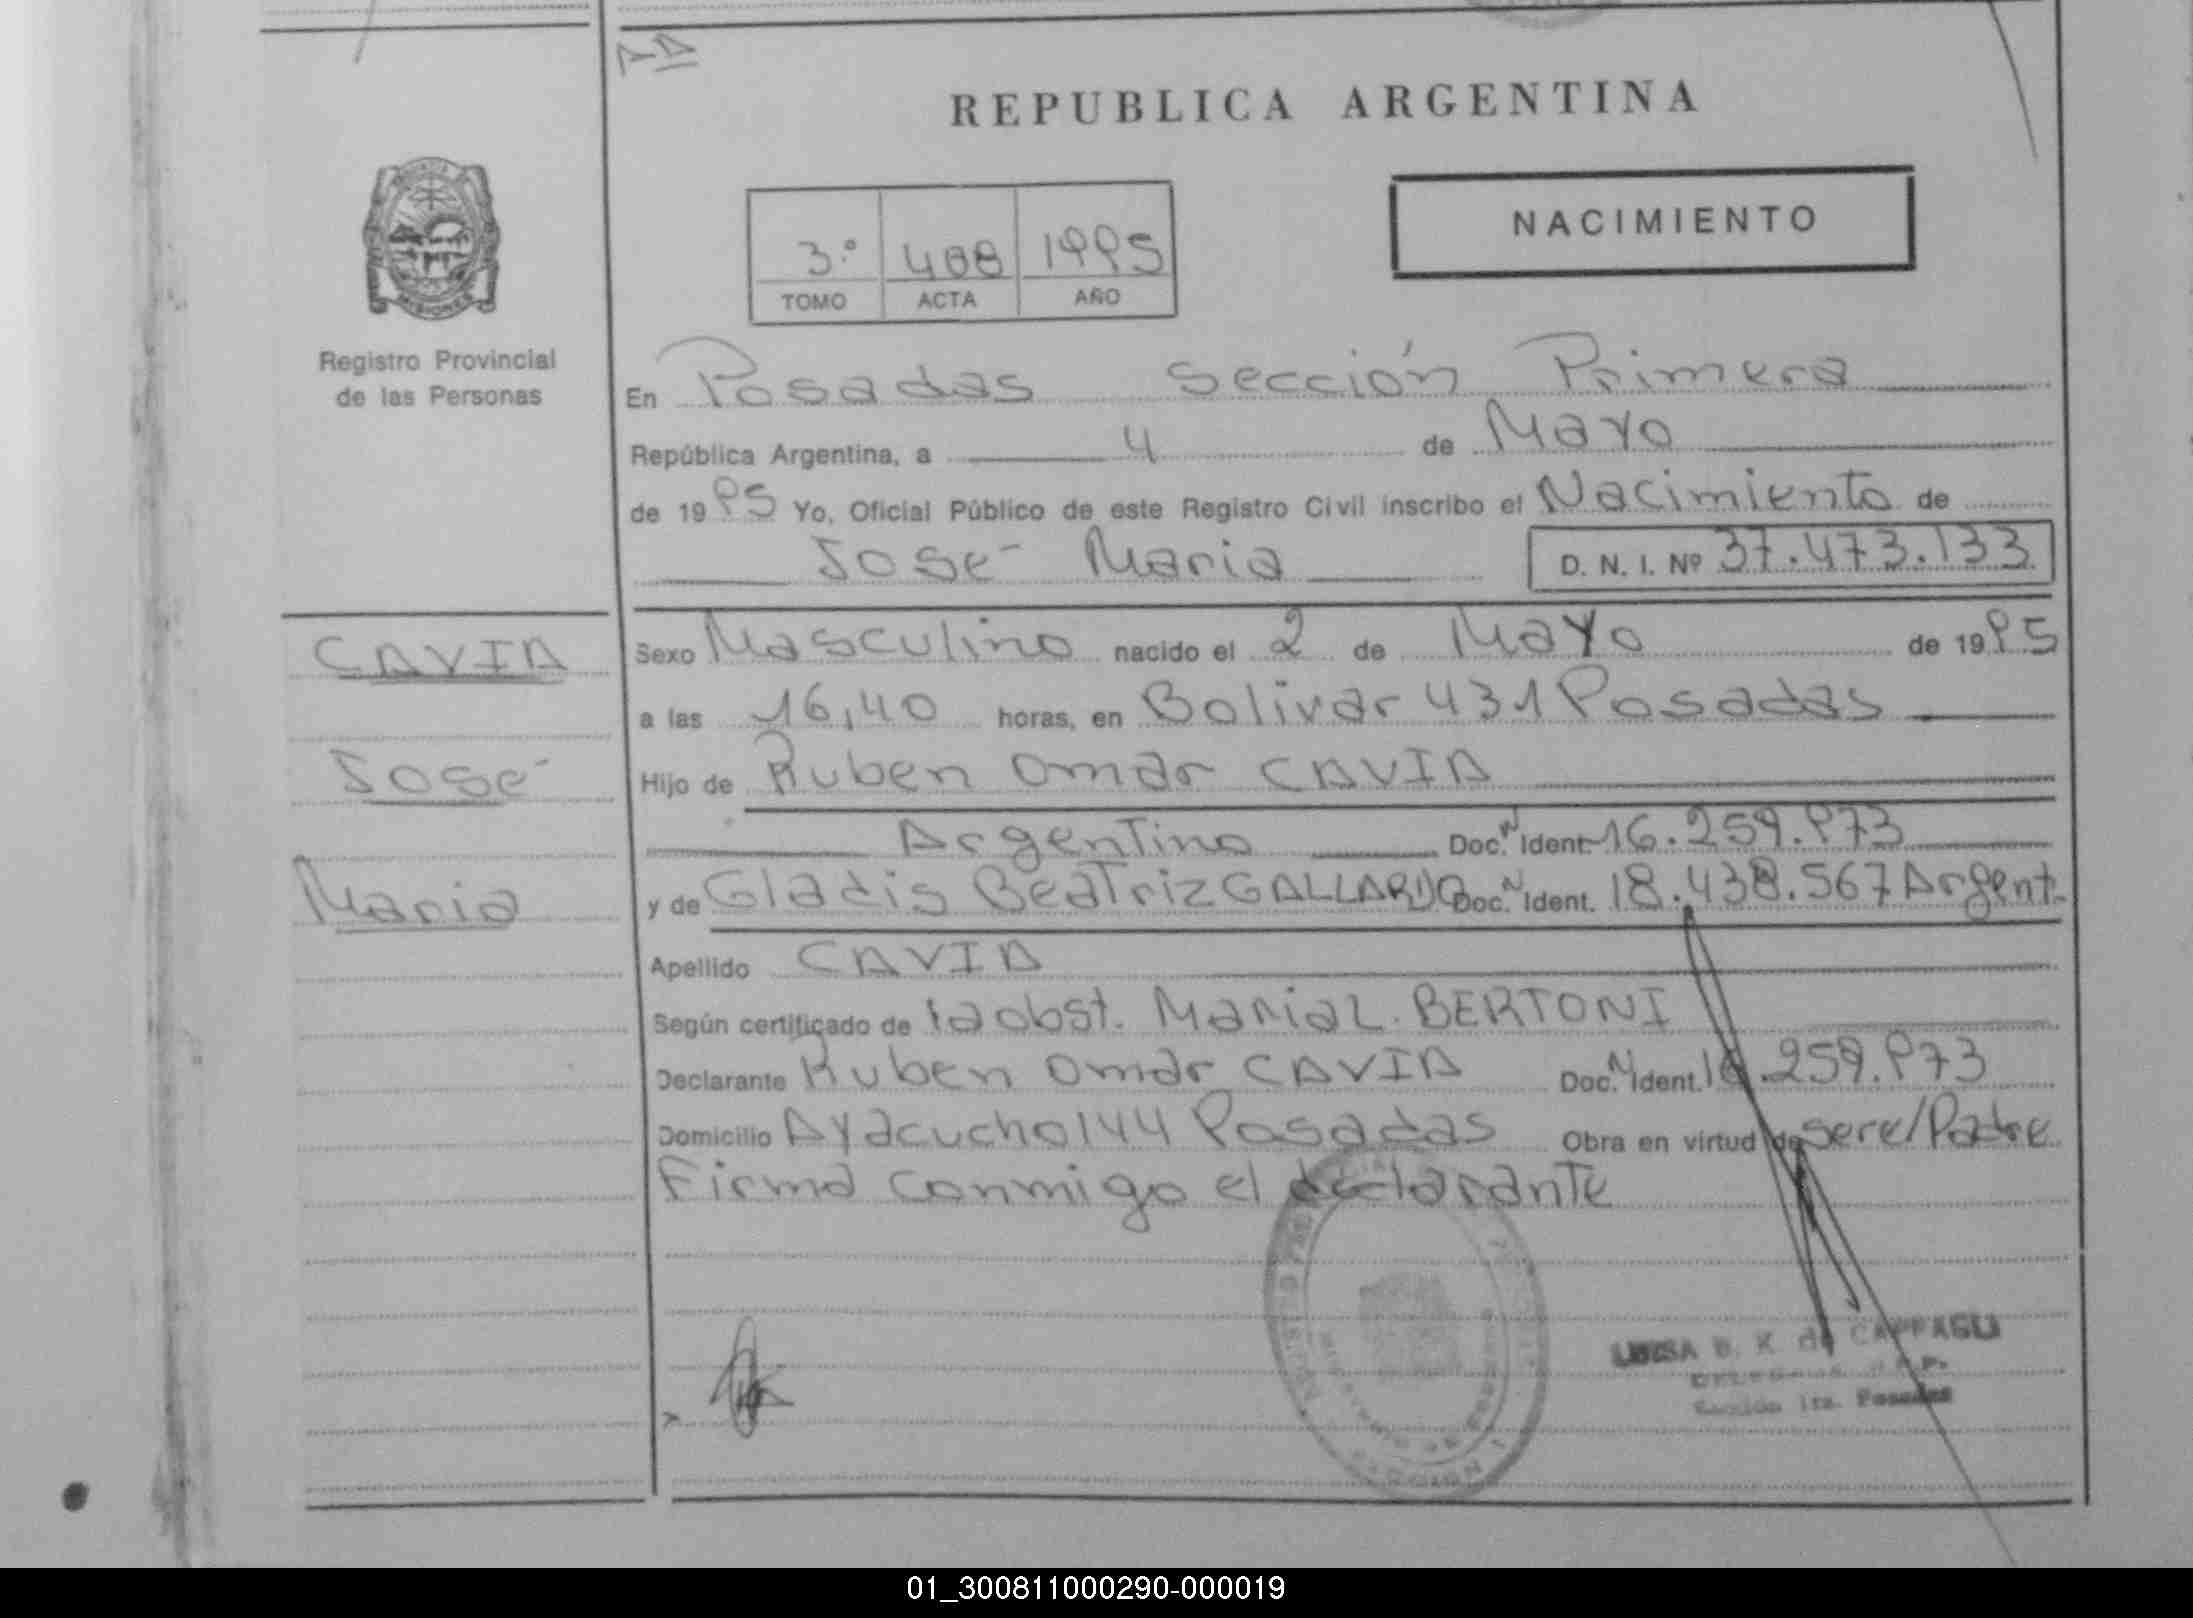 REPUBLICA ARGENTINA
NACIMIENTO
3.º 488 1995
TOMO ACTA AÑO
Registro Provincial
de las Personas
En Posadas sección Primera
República Argentina, a 4 de Mayo
de 1995 Yo, Oficial Público de este Registro Civil inscribo el Nacimiento de
José Maria D. N. I. Nº 37.473.133
CAVIA
José
Maria
Sexo Masculino nacido el 2 de Mayo de 1995
a las 16,40 horas, en Bolivar 431 Posadas
Hijo de Ruben Omar CAVIA
Argentino Doc. N Ident. 16.259.973
y de Gladis Beatriz GALLARDO Doc. N Ident. 18.438.567 Argent.
Apellido CAVIA
Según certificado de la obst. Maria L. BERTONI
Declarante Ruben Omar CAVIA Doc. N Ident. 16.259.973
Domicilio Ayacucho 144 Posadas Obra en virtud de ser el Padre
Firma conmigo el declarante
LUISA B. K. de CAFFAGLI
Sección 1ra. Posadas
01_300811000290-000019